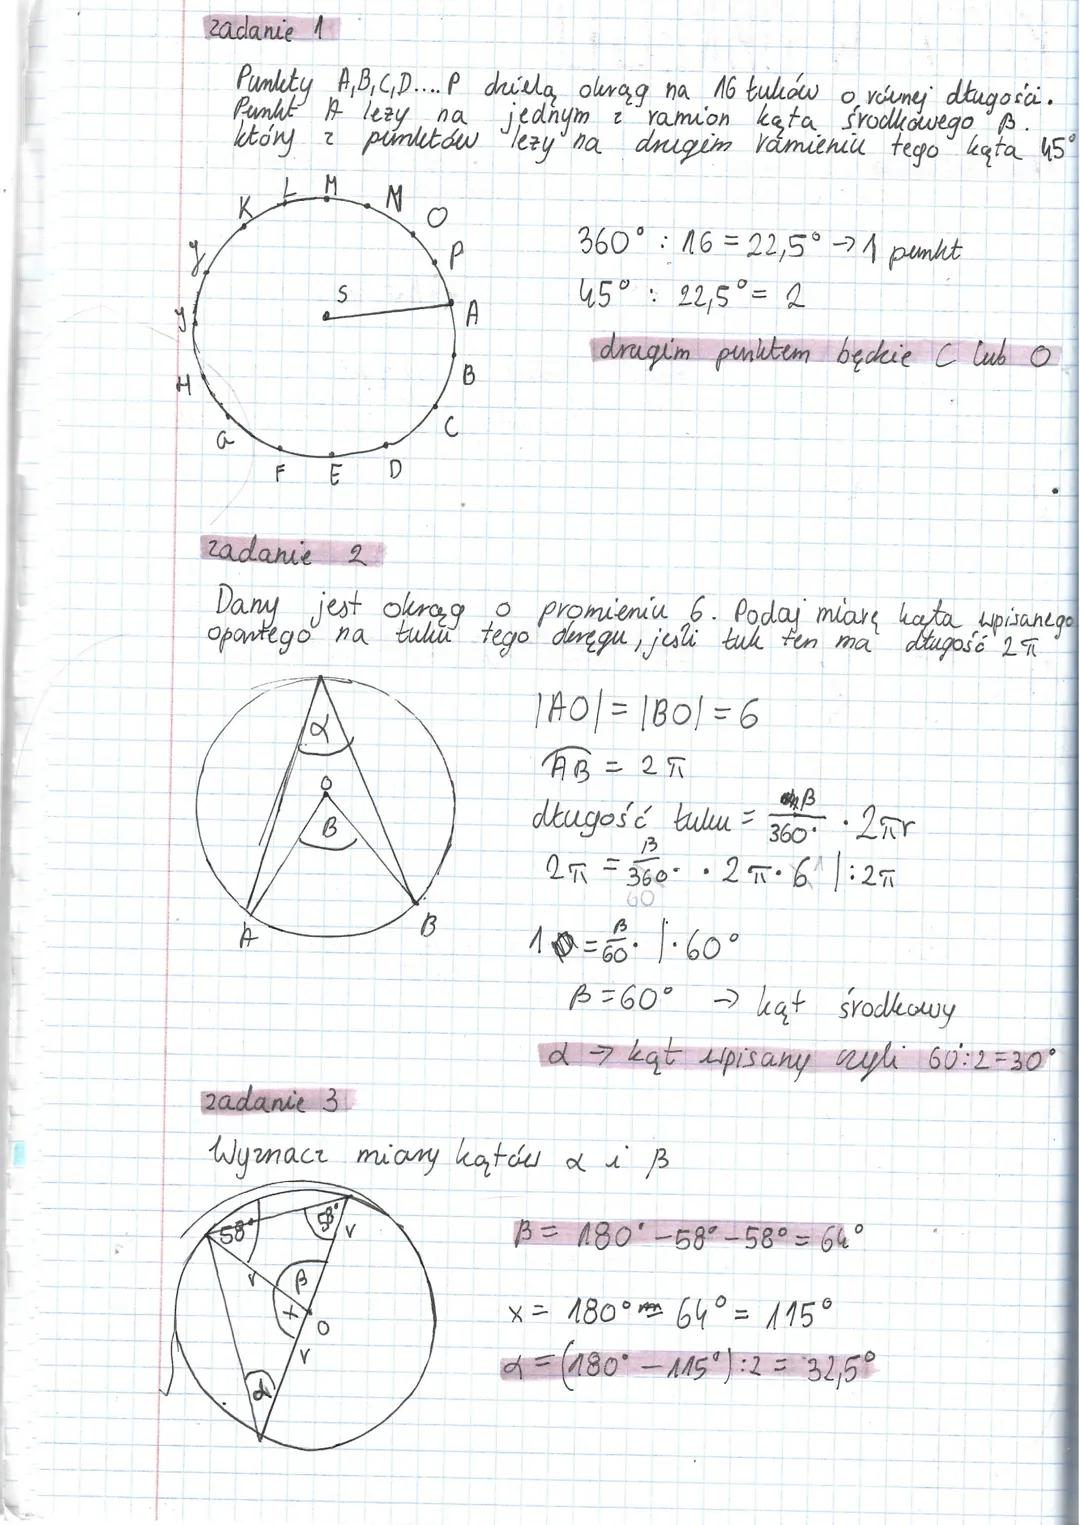 zadanie 1
Punkty A,B,C,D....P dzielą okrąg na 16 łuków o równej długości.
Punkt A leży na jednym z ramion kąta środkowego β.
który z punktów leży na drugim ramieniu tego kąta 45°
K L M N O
P
J
S
A
J
B
H
C
G
F E D
360° : 16 = 22,5° → 1 punkt
45° : 22,5° = 2
drugim punktem będzie C lub O
zadanie 2
Dany jest okrąg o promieniu 6. Podaj miarę kąta wpisanego
opartego na łuku tego okręgu, jeśli łuk ten ma długość 2π
α
O
β
A B
|AO| = |BO| = 6
AB = 2π
długość łuku = β/360° · 2πr
2π = β/360° · 2π · 6 |:2π
60
1 = β/60° |·60°
β = 60° → kąt środkowy
α → kąt wpisany czyli 60°:2=30°
zadanie 3
Wyznacz miary kątów α i β
58° 58°
r
r β
x O
r
α
β = 180° - 58° - 58° = 64°
x = 180° - 64° = 115°
α = (180° - 115°) : 2 = 32,5°